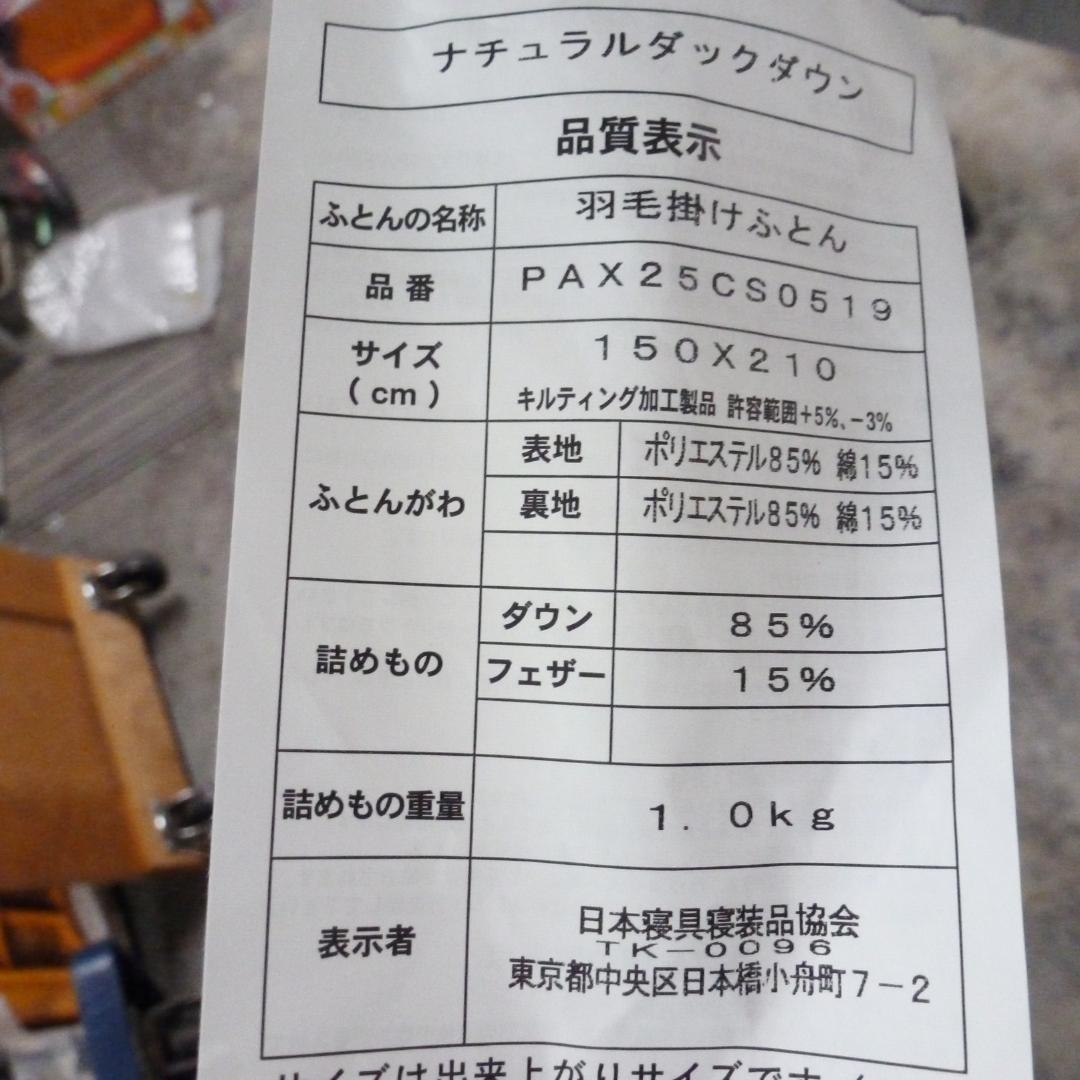 ナチュラルダックダウン
品質表示
ふとんの名称 羽毛掛けふとん
品番 PAX25CS0519
サイズ(cm) 150X210
キルティング加工製品 許容範囲+5%、-3%
ふとんがわ 表地 ポリエステル85% 綿15%
裏地 ポリエステル85% 綿15%
詰めもの ダウン 85%
フェザー 15%
詰めものの重量 1.0kg
表示者 日本寝具寝装品協会
TK-0096
東京都中央区日本橋小舟町7-2
サイズは出来上がりサイズです